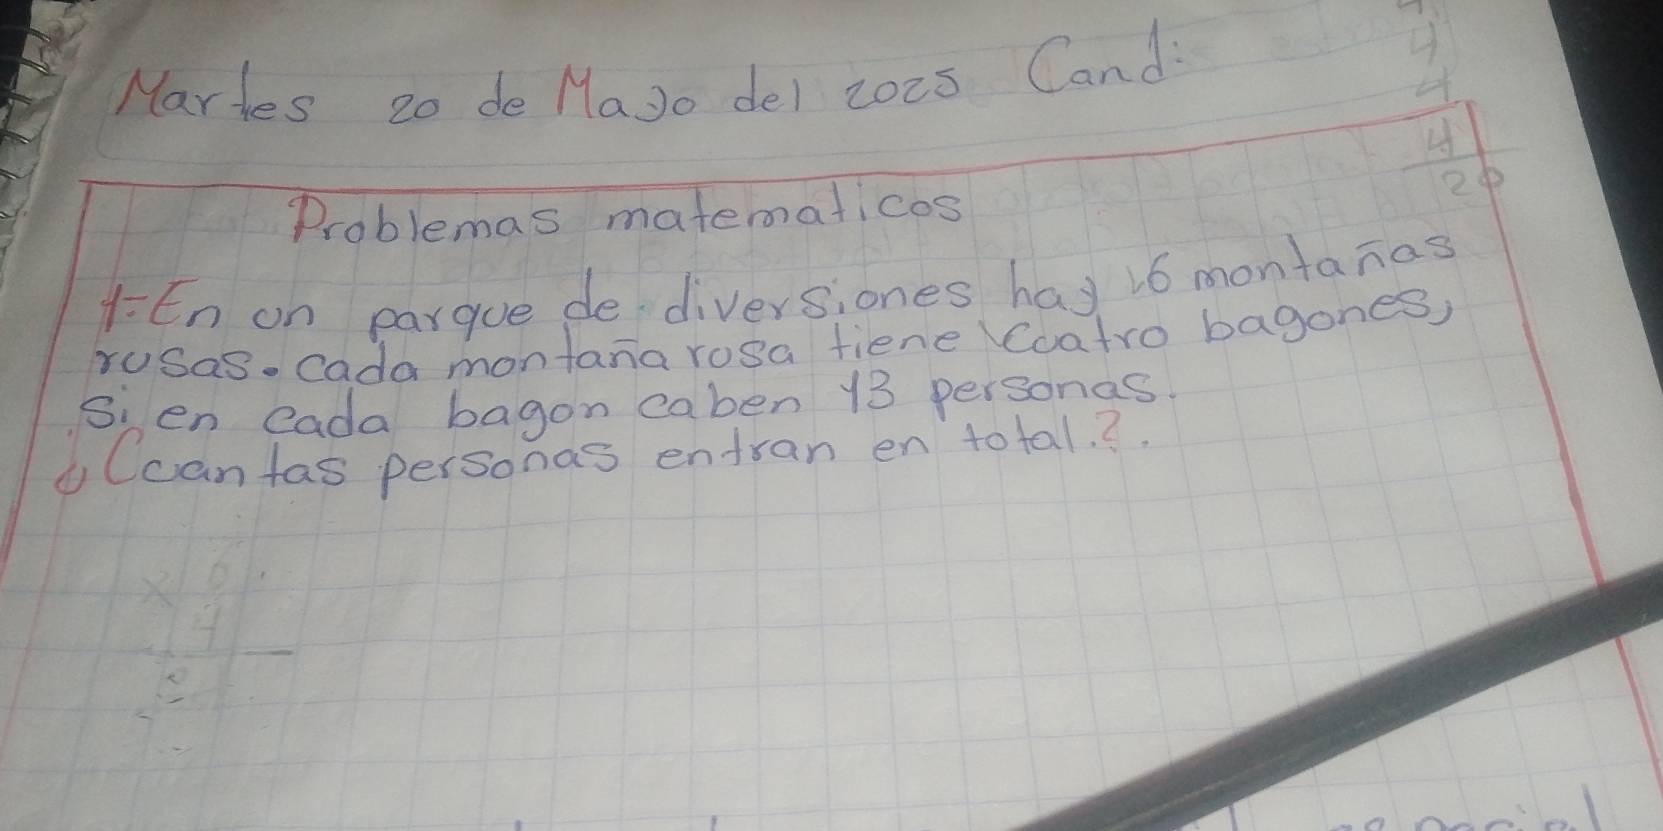 Martes 20 de Mayo del 2025 Cand:
4
4
4
20
Problemas matematicos
1-En un parque de diversiones hay 16 montañas
rusas. cada montaña rosa tiene cuatro bagones,
si en cada bagon caben 13 personas.
¿Ccuantas personas entran en total.?.
x 6
4